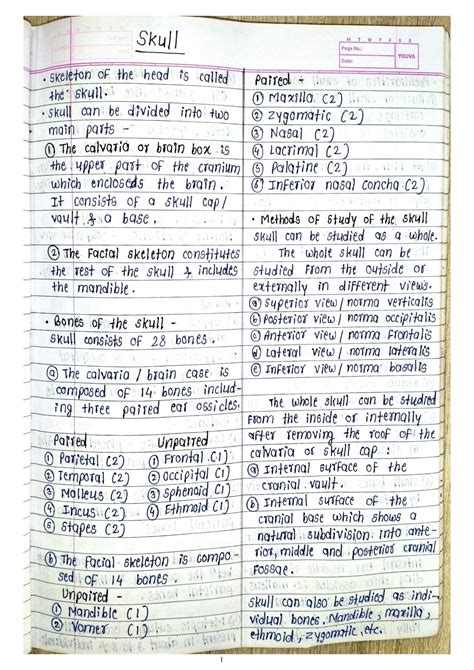 Skull
M T W T F S S
Page No.:
Date:
YOUVA
• Skeleton of the head is called
the skull.
• Skull can be divided into two
main parts -
① The calvaria or brain box is
the upper part of the cranium
which encloseds the brain.
It consists of a skull cap/
vault & a base.
② The Facial skeleton constitutes
the rest of the skull & includes
the mandible.
• Bones of the skull -
skull consists of 28 bones.
ⓐ The calvaria / brain case is
composed of 14 bones includ-
ing three paired ear ossicles.
Paired Unpaired
① Parietal (2) ① Frontal (1)
② Temporal (2) ② Occipital (1)
③ Malleus (2) ③ Sphenoid (1)
④ Incus (2) ④ Ethmoid (1)
⑤ Stapes (2)
ⓑ The facial skeleton is compo-
sed of 14 bones.
Unpaired -
① Mandible (1)
② Vomer (1)
Paired -
① Maxilla (2)
② Zygomatic (2)
③ Nasal (2)
④ Lacrimal (2)
⑤ Palatine (2)
⑥ Inferior nasal concha (2)
• Methods of study of the skull
skull can be studied as a whole.
The whole skull can be
studied from the outside or
externally in different views.
ⓐ Superior view / norma verticalis
ⓑ Posterior view / norma occipitalis
ⓒ Anterior view / norma frontalis
ⓓ Lateral view / norma lateralis
ⓔ Inferior view / norma basalis
The whole skull can be studied
from the inside or internally
after removing the roof of the
calvaria or skull cap :
ⓐ Internal surface of the
cranial vault.
ⓑ Internal surface of the
cranial base which shows a
natural subdivision into ante-
rior, middle and posterior cranial
fossae.
skull can also be studied as indi-
vidual bones. Mandible, maxilla,
ethmoid, zygomatic, etc.
1